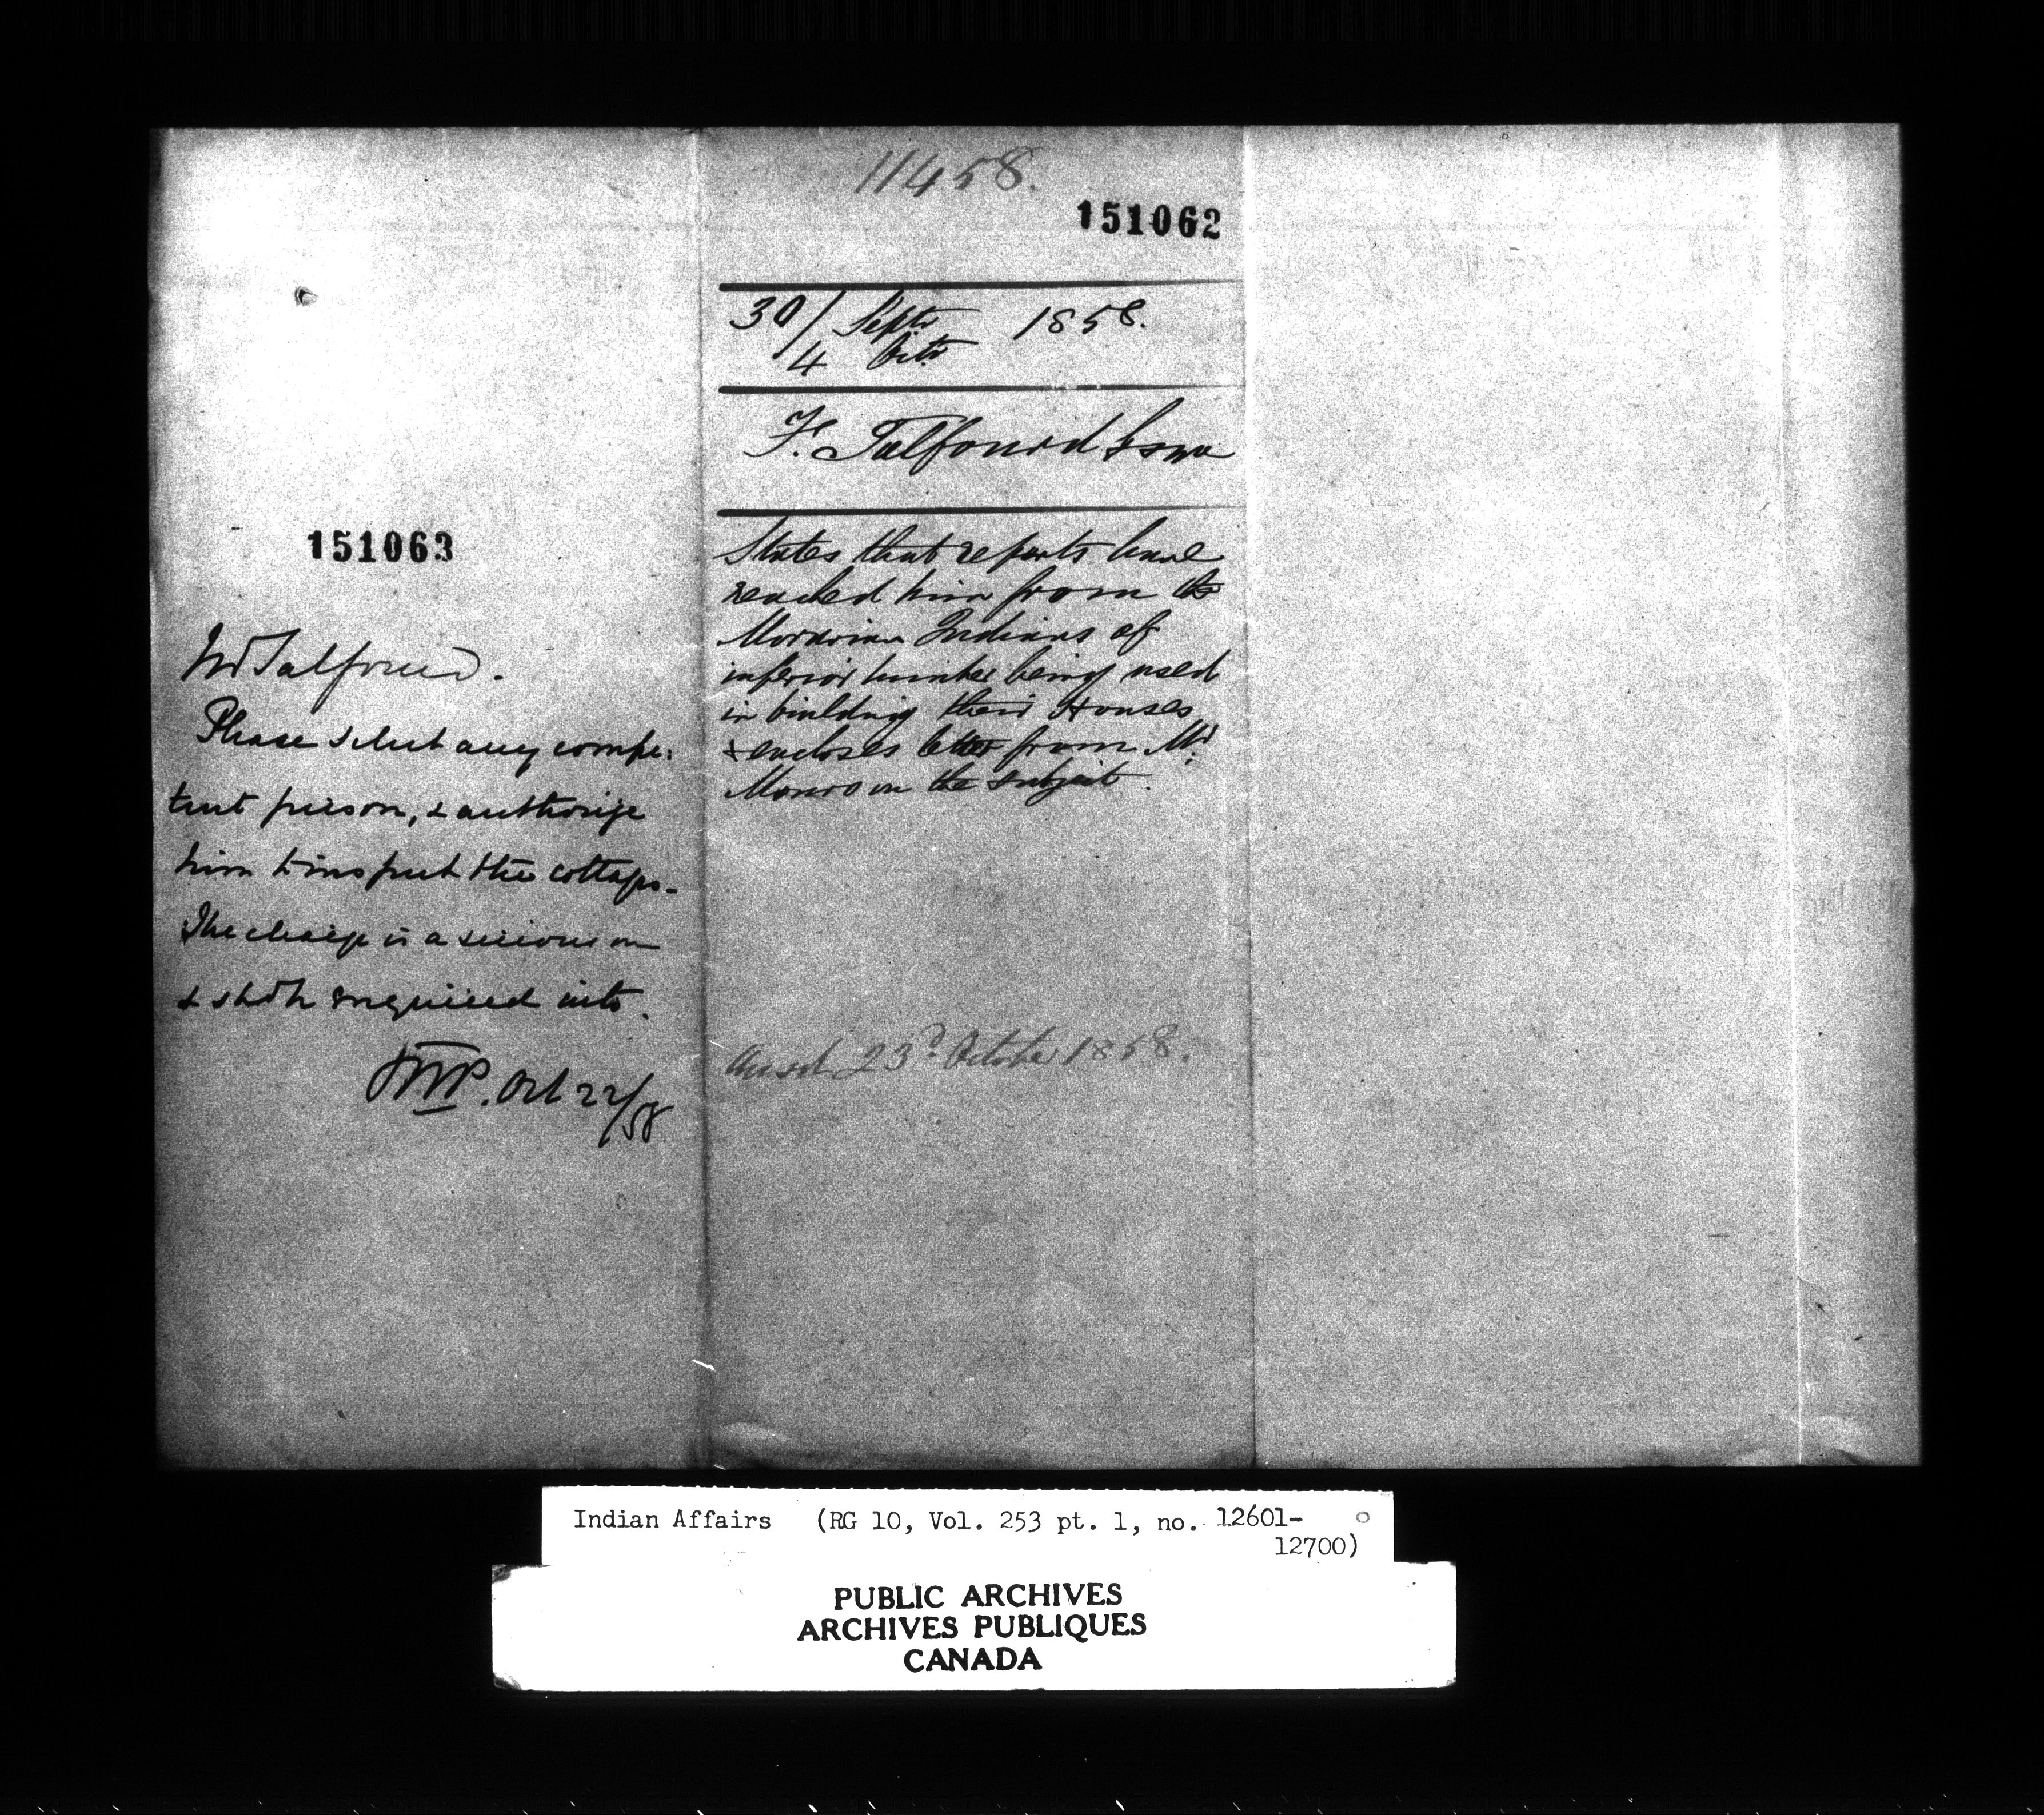 151063
Mr Talfourd.
Please select any compe-
tent person, & authorize
him to inspect the cottages.
The charge is a serious one
& shd be enquired into.
RTP. Oct 22/58
11458.
151062
30/ Septr 1858.
4 Octr
F. Talfourd Esqre
States that reports have
reached him from the
Moravian Indians of
inferior timber being used
in building their Houses
& encloses letter from Mr
Monro on the subject.
Ansd 23d October 1858.
Indian Affairs (RG 10, Vol. 253 pt. 1, no. 12601-
12700)
PUBLIC ARCHIVES
ARCHIVES PUBLIQUES
CANADA